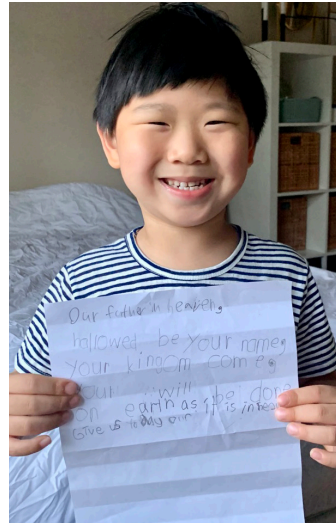 Our father in heaven,
hallowed be your name,
your kingom come,
your will be done
on earth as it is in heav
Give us today our